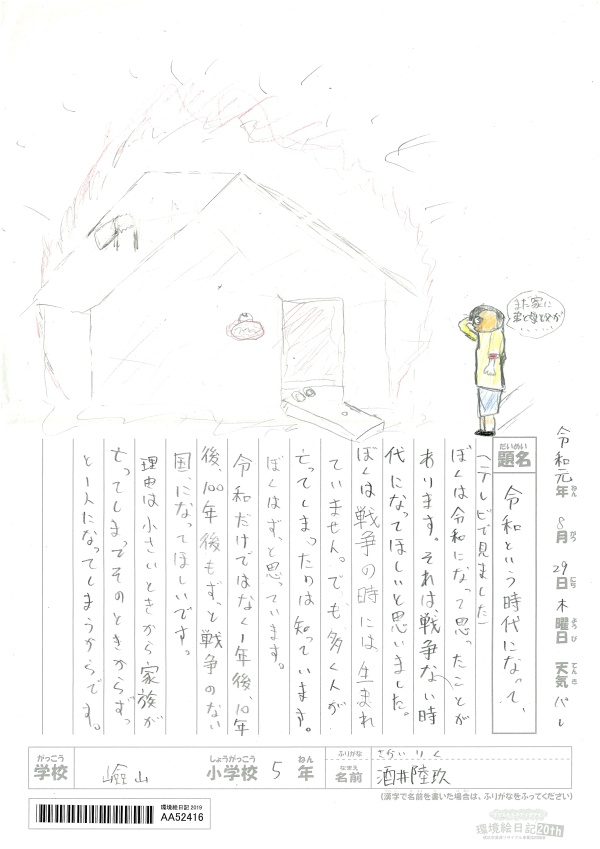 また家に
弟と母と父が
......
令和元年 8月 29日 木曜日 天気 バレ
ねん がつ にち よう び てんき
だいめい
題名
令和という時代になって、
(テレビで見ました)
ぼくは令和になって思ったことが
あります。それは、戦争ない時
代になってほしいと思いました。
ぼくは戦争の時には生まれ
ていません。でも多く人が
亡ってしまったのは知っています。
ぼくはずっと思っています。
令和だけではなく1年後、10年
後、100年後もずっと戦争のない
国、になってほしいです。
理由は小さいときから家族が
亡ってしまってそのときからずっ
と一人になってしまうからです。
がっこう
学校
山
しょうがっこう
小学校
5
ねん
年
ふりがな
さかい りく
なまえ
名前
酒井陸玖
(漢字で名前を書いた場合は、ふりがなをふってください)
環境絵日記 2019
AA52416
環境絵日記20th